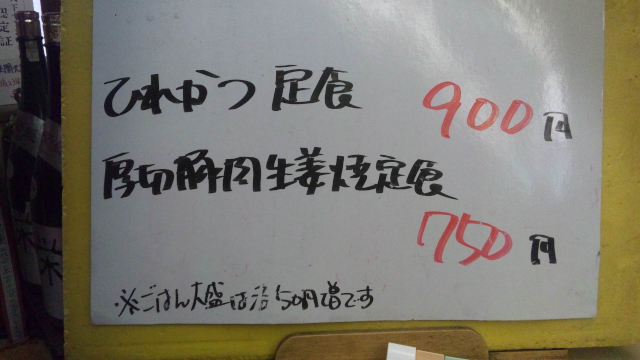 ひれかつ定食 900円
厚切豚肉生姜焼定食
750円
※ごはん大盛は 50円増です